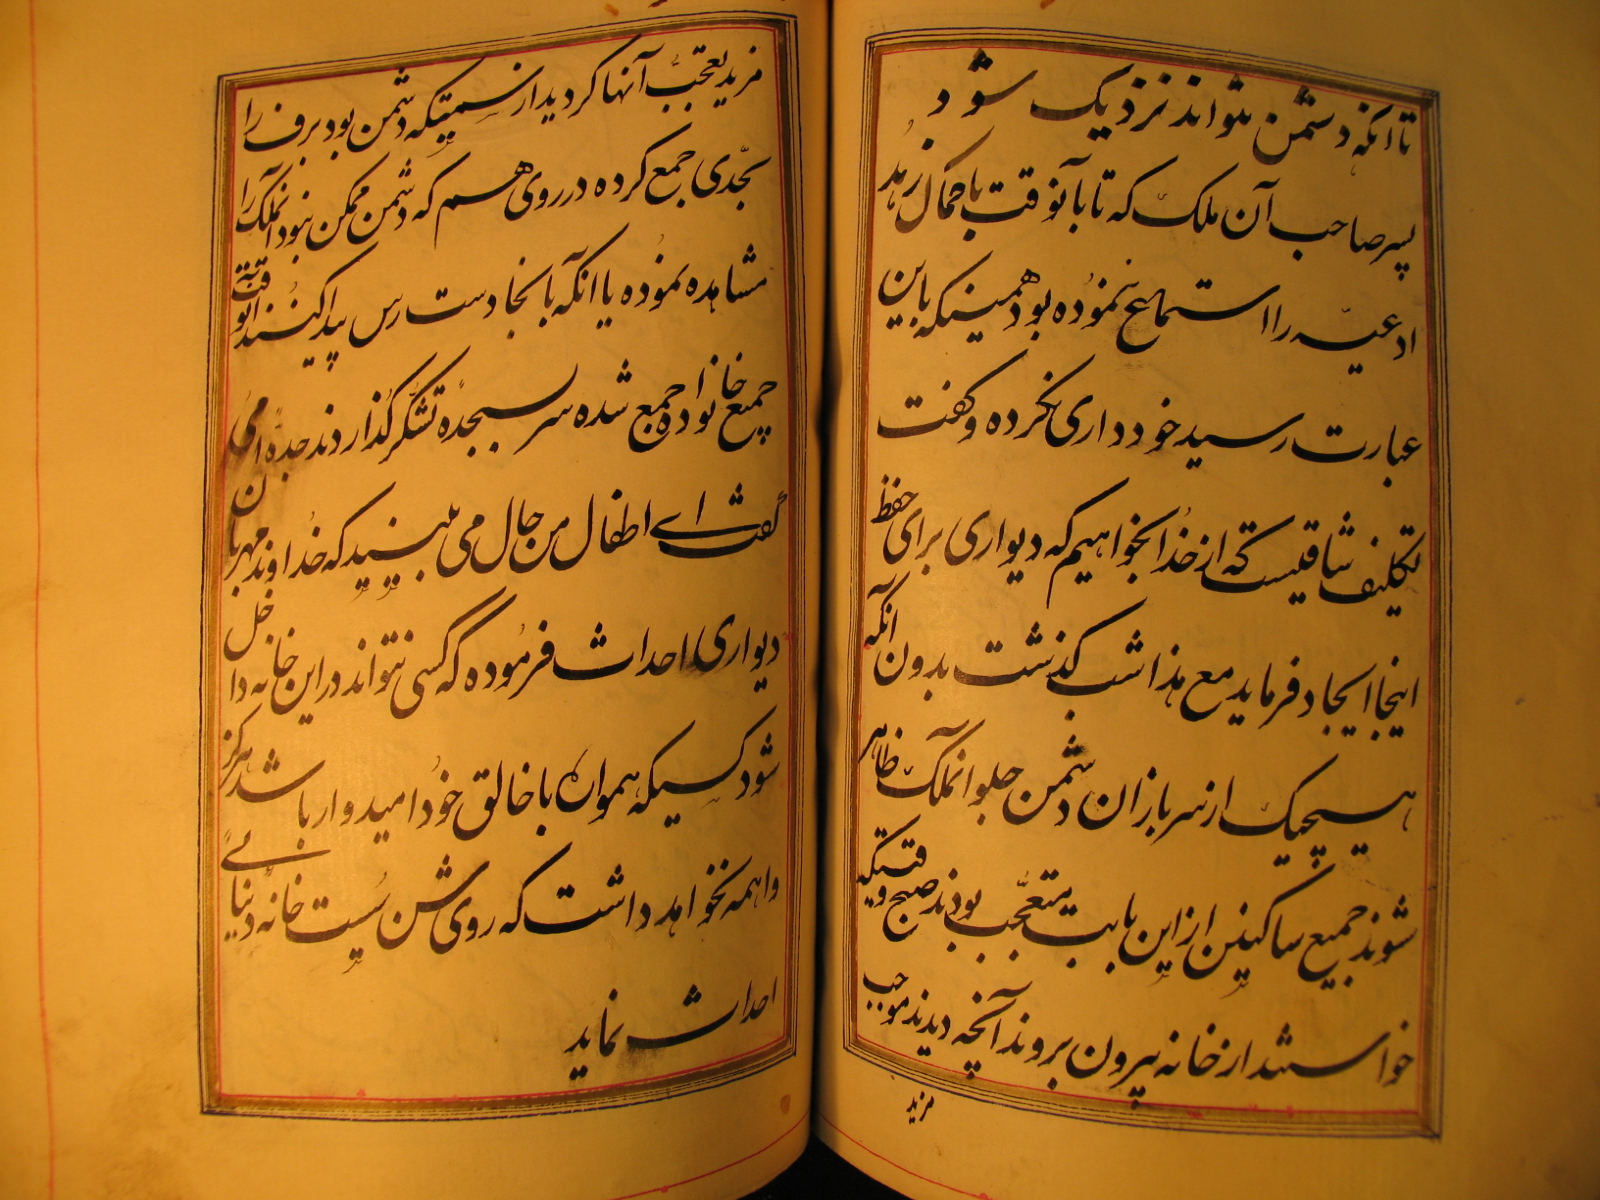 تا آنکه دشمن نتواند نزدیک شود
پسر صاحب آن ملک که تا بآنوقت با کمال زهد
ادعیه را استماع نموده بود همینکه باین
عبارت رسید خودداری نکرده و گفت
تکلیف شاقیست که از خدا بخواهیم که دیواری برای حفظ
اینجا ایجاد فرماید مع هذا شب گذشت بدون آنکه
هیچیک از سربازان دشمن جلو انملک ظاهر
شوند جمیع ساکنین از این بابت متعجب بودند صبح وقتیکه
خواستند از خانه بیرون بروند آنچه دیدند موجب
مزید
مزید تعجب آنها گردید از سمتیکه دشمن بود برف را
بحدی جمع کرده در روی هم که دشمن ممکن نبود انملک را
مشاهده نموده یا آنکه بانجا دست رس پیدا کنند انوقت
جمیع خانواده جمع شده سر بسجده تشکر گذاردند جده امی
گفت ای اطفال من حال می بینید که خداوند مهربان
دیواری احداث فرموده که کسی نتواند در این خانه داخل
شود کسیکه همواره با خالق خود امیدوار باشد هرگز
واهمه نخواهد داشت که روی شن سست خانه دنیائی
احداث نماید